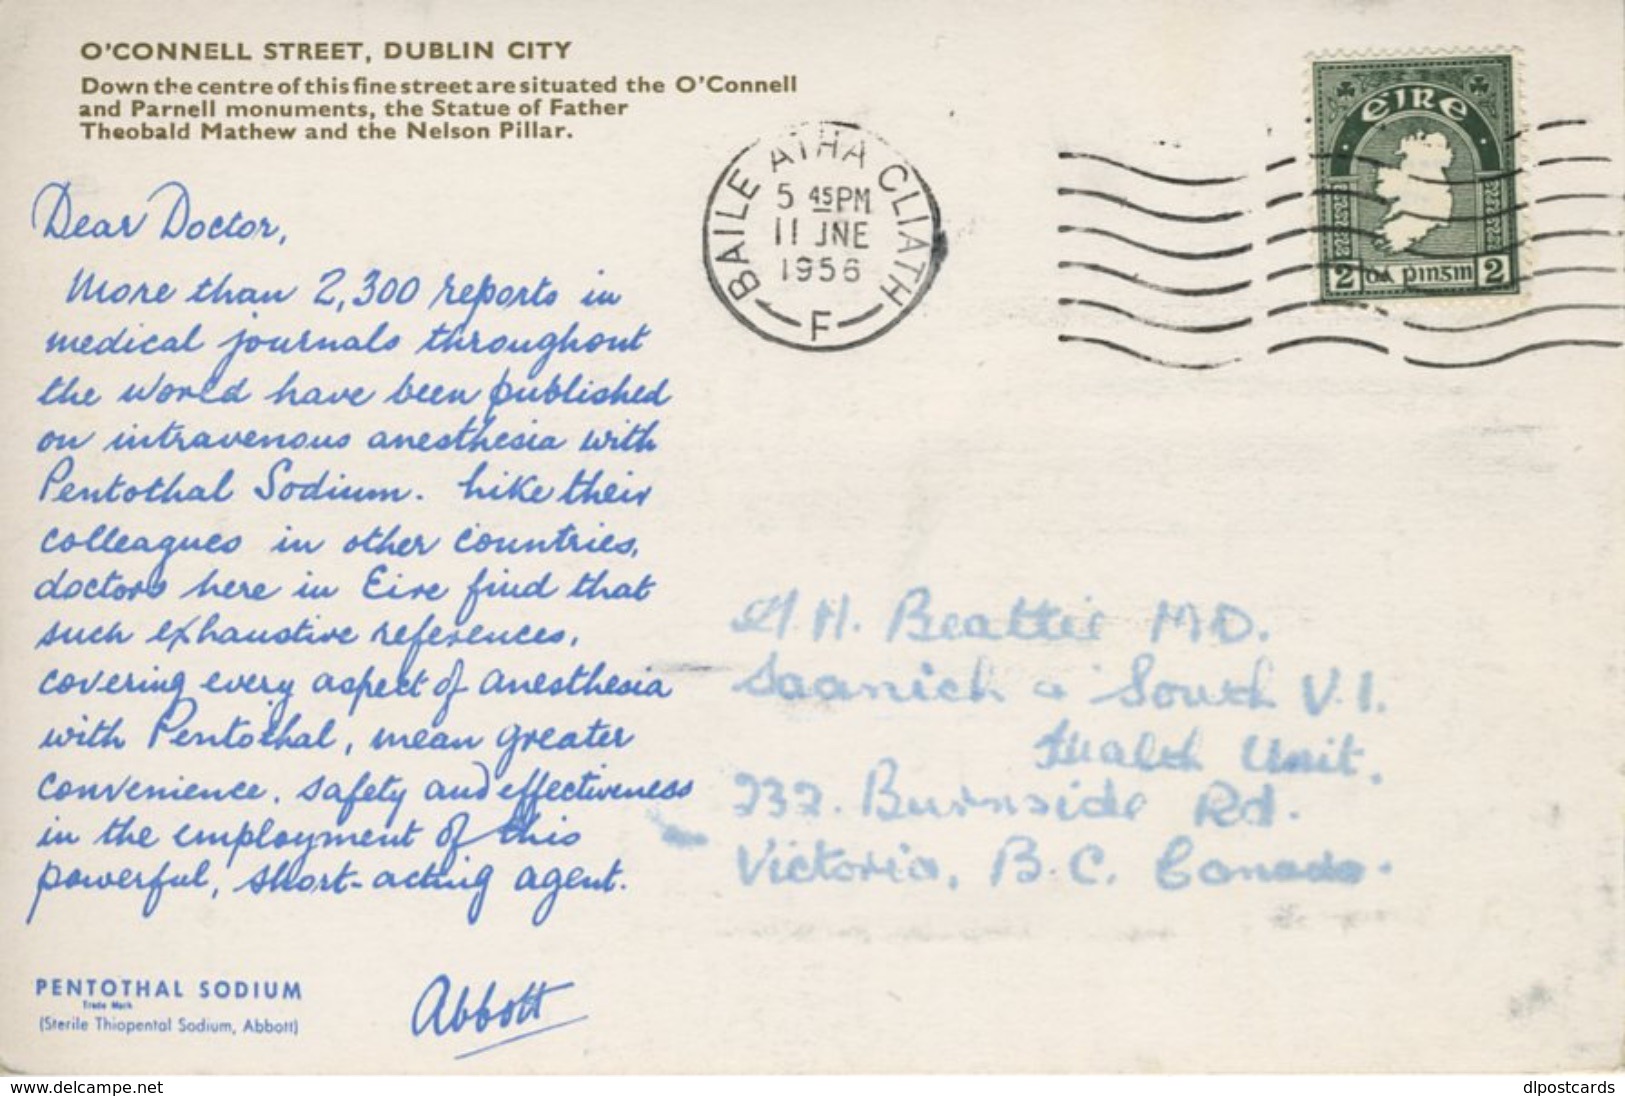 O'CONNELL STREET, DUBLIN CITY
Down the centre of this fine street are situated the O'Connell
and Parnell monuments, the Statue of Father
Theobald Mathew and the Nelson Pillar.
BAILE ATHA CLIATH
5 45PM
11 JNE
1956
F
EIRE
2 DA PINSIN 2
Dear Doctor,
More than 2,300 reports in
medical journals throughout
the world have been published
on intravenous anesthesia with
Pentothal Sodium. Like their
colleagues in other countries,
doctors here in Eire find that
such exhaustive references,
covering every aspect of anesthesia
with Pentothal, mean greater
convenience, safety and effectiveness
in the employment of this
powerful, short-acting agent.
PENTOTHAL SODIUM
Trade Mark
(Sterile Thiopental Sodium, Abbott)
Abbott
H. Beattie MD.
Saanich & South V.I.
Health Unit.
Burnside Rd.
Victoria, B.C. Canada.
www.delcampe.net
dlpostcards